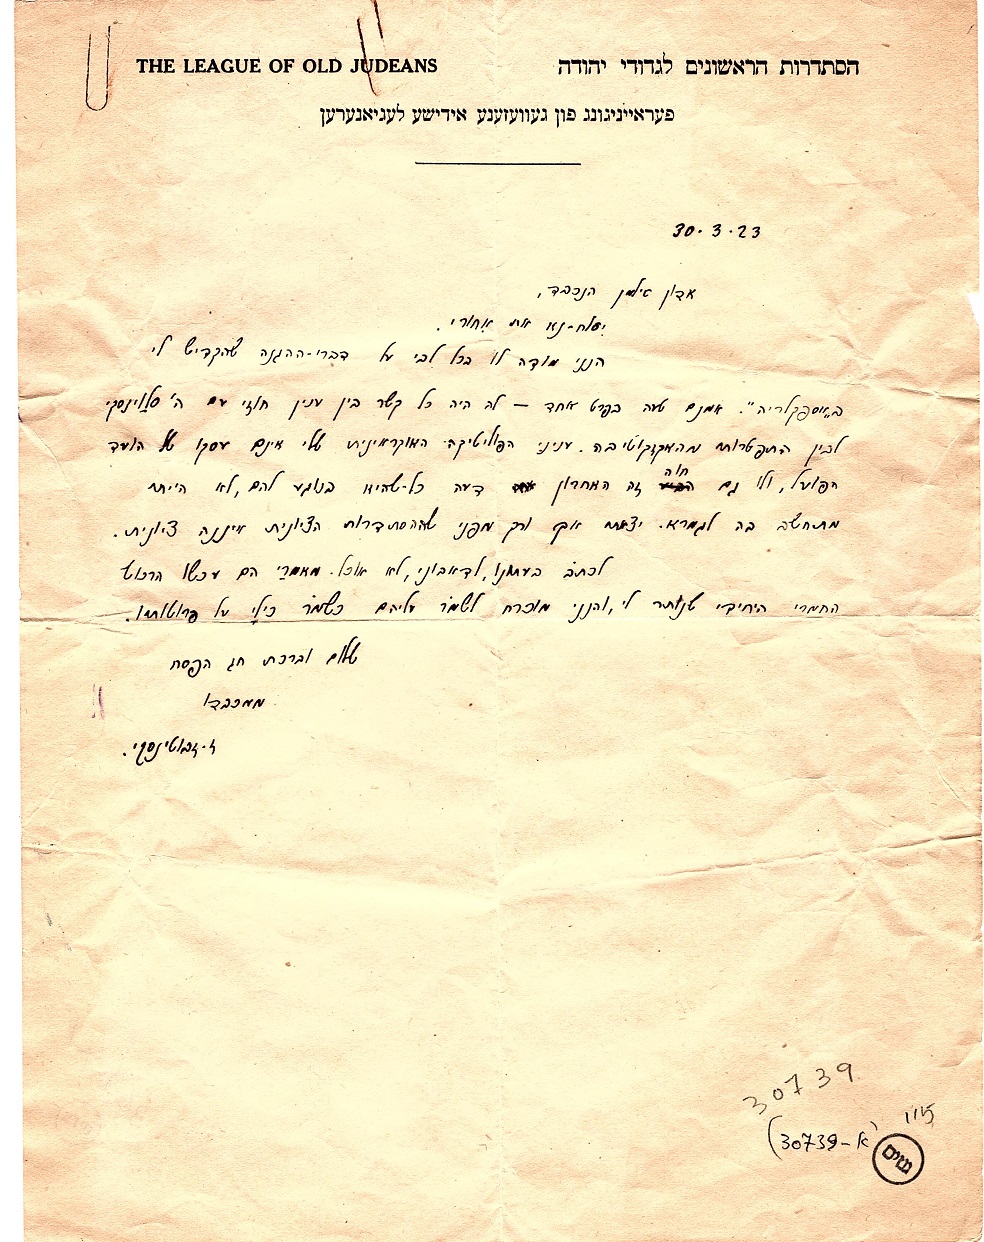 THE LEAGUE OF OLD JUDEANS
הסתדרות הראשונים לגדודי יהודה
פעראייניגונג פון געוועזענע אידישע לעגיאנערען
30.3.23
אדון גילמן הנכבד,
יסלח-נא את אִחורי.
הנני מודה לו בכל לבי על דברי-ההגנה שהקדיש לי
ב„אספקלריה". אמנם טעה בפרט אחד — לא היה כל קשר בין ענין חוזי עם ה' סלאַוינסקי
לבין התפטרותי מהאקזקוטיבה. עניני הפוליטיקה האוקראינית שלי אינם עסקו של הועד
הפועל, ולו גם חוה זה האחרון דעה כל-שהיא בנוגע להם, לא הייתי
מתחשב בה לגמרא. יצאתי אך ורק מפני שההסתדרות הציונית איננה ציונית.
לכתֹּב בעתונו, לדאבוני, לא אוכל. מאמרַי הם עכשו הרכוש
החמרי היחידי שנותר לי, והנני מוכרח לשמֹר עליהם כשמֹר כילַי על פרוטותיו.
שלום וברכת חג הפסח
ממכבדו
ז. ז'בוטינסקי.
30739
(א-30739)